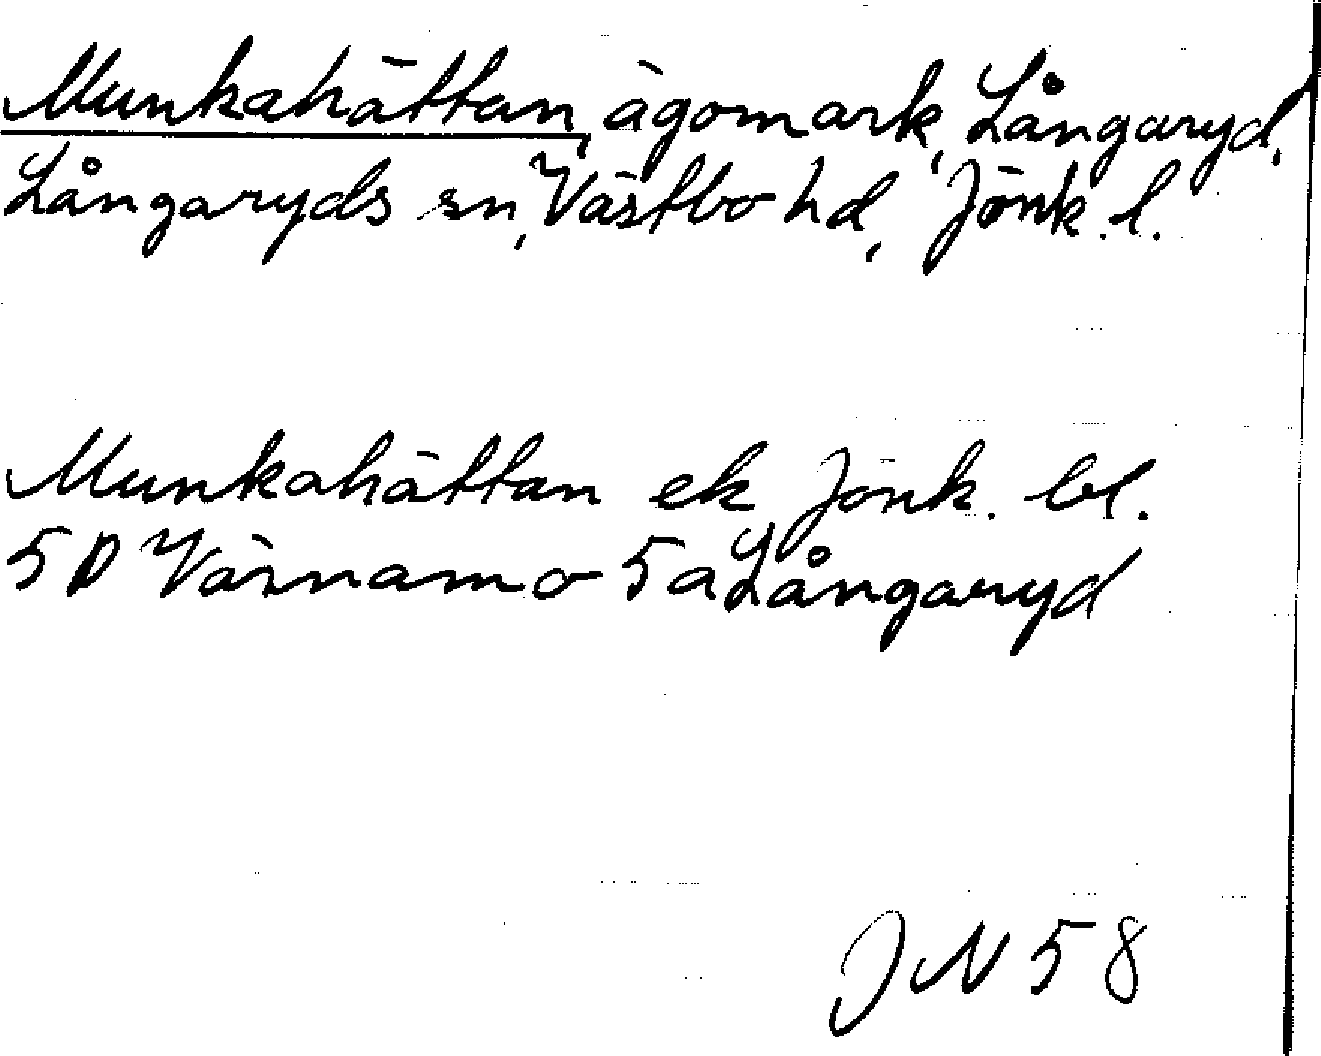 Munkahättan, ägomark, Långaryd,
Långaryds sn, Västbo hd, Jönk. l.
Munkahättan ek Jönk. bl.
5 D Värnamo 5 a Långaryd
JN 58